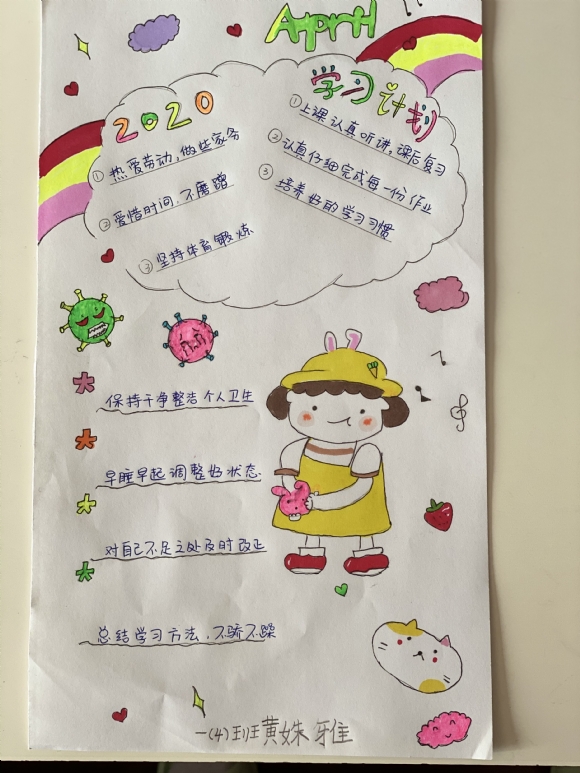 April
2020
学习计划
①热爱劳动,做些家务
②爱惜时间,不磨蹭
③坚持体育锻炼
①上课认真听讲,课后复习
②认真仔细完成每一份作业
③培养好的学习习惯
保持干净整洁个人卫生
早睡早起调整好状态
对自己不足之处及时改正
总结学习方法,不骄不躁
一(4)班黄姝雅